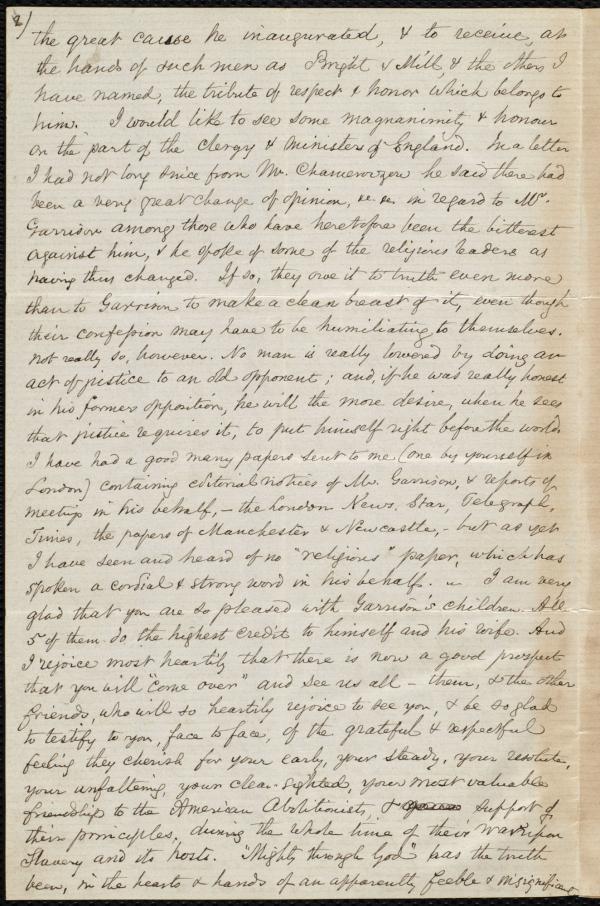 2/
the great cause he inaugurated, & to receive, at
the hands of such men as Bright & Mill, & the others I
have named, the tribute of respect & honor which belongs to
him. I would like to see some magnanimity & honour
on the part of the clergy & ministers of England. In a letter
I had not long since from Mr. Chamerovzow he said there had
been a very great change of opinion, &c. &c. in regard to Mr.
Garrison among those who have heretofore been the bitterest
against him, & he spoke of some of the religious leaders as
having thus changed. If so, they owe it to truth even more
than to Garrison to make a clean breast of it, even though
their confession may have to be humiliating to themselves.
Not really so, however. No man is really lowered by doing an
act of justice to an old opponent; and, if he was really honest
in his former opposition, he will the more desire, when he sees
that justice requires it, to put himself right before the world.
I have had a good many papers sent to me (one by yourself in
London) containing editorial notices of Mr. Garrison, & reports of
meetings in his behalf, - the London News, Star, Telegraph,
Times, the papers of Manchester & Newcastle, - but as yet
I have seen and heard of no "religious" paper, which has
spoken a cordial & strong word in his behalf. I am very
glad that you are so pleased with Garrison's children. All
5 of them do the highest credit to himself and his wife. And
I rejoice most heartily that there is now a good prospect
that you will "come over" and see us all - them, & the other
friends, who will so heartily rejoice to see you, & be so glad
to testify to you, face to face, of the grateful & respectful
feeling they cherish for your early, your steady, your resolute,
your unfaltering, your clear-sighted, your most valuable
friendship to the American Abolitionists, & support of
their principles, during the whole time of their war upon
Slavery and its hosts. "Mighty through God" has the truth
been, in the hearts & hands of an apparently feeble & insignificant